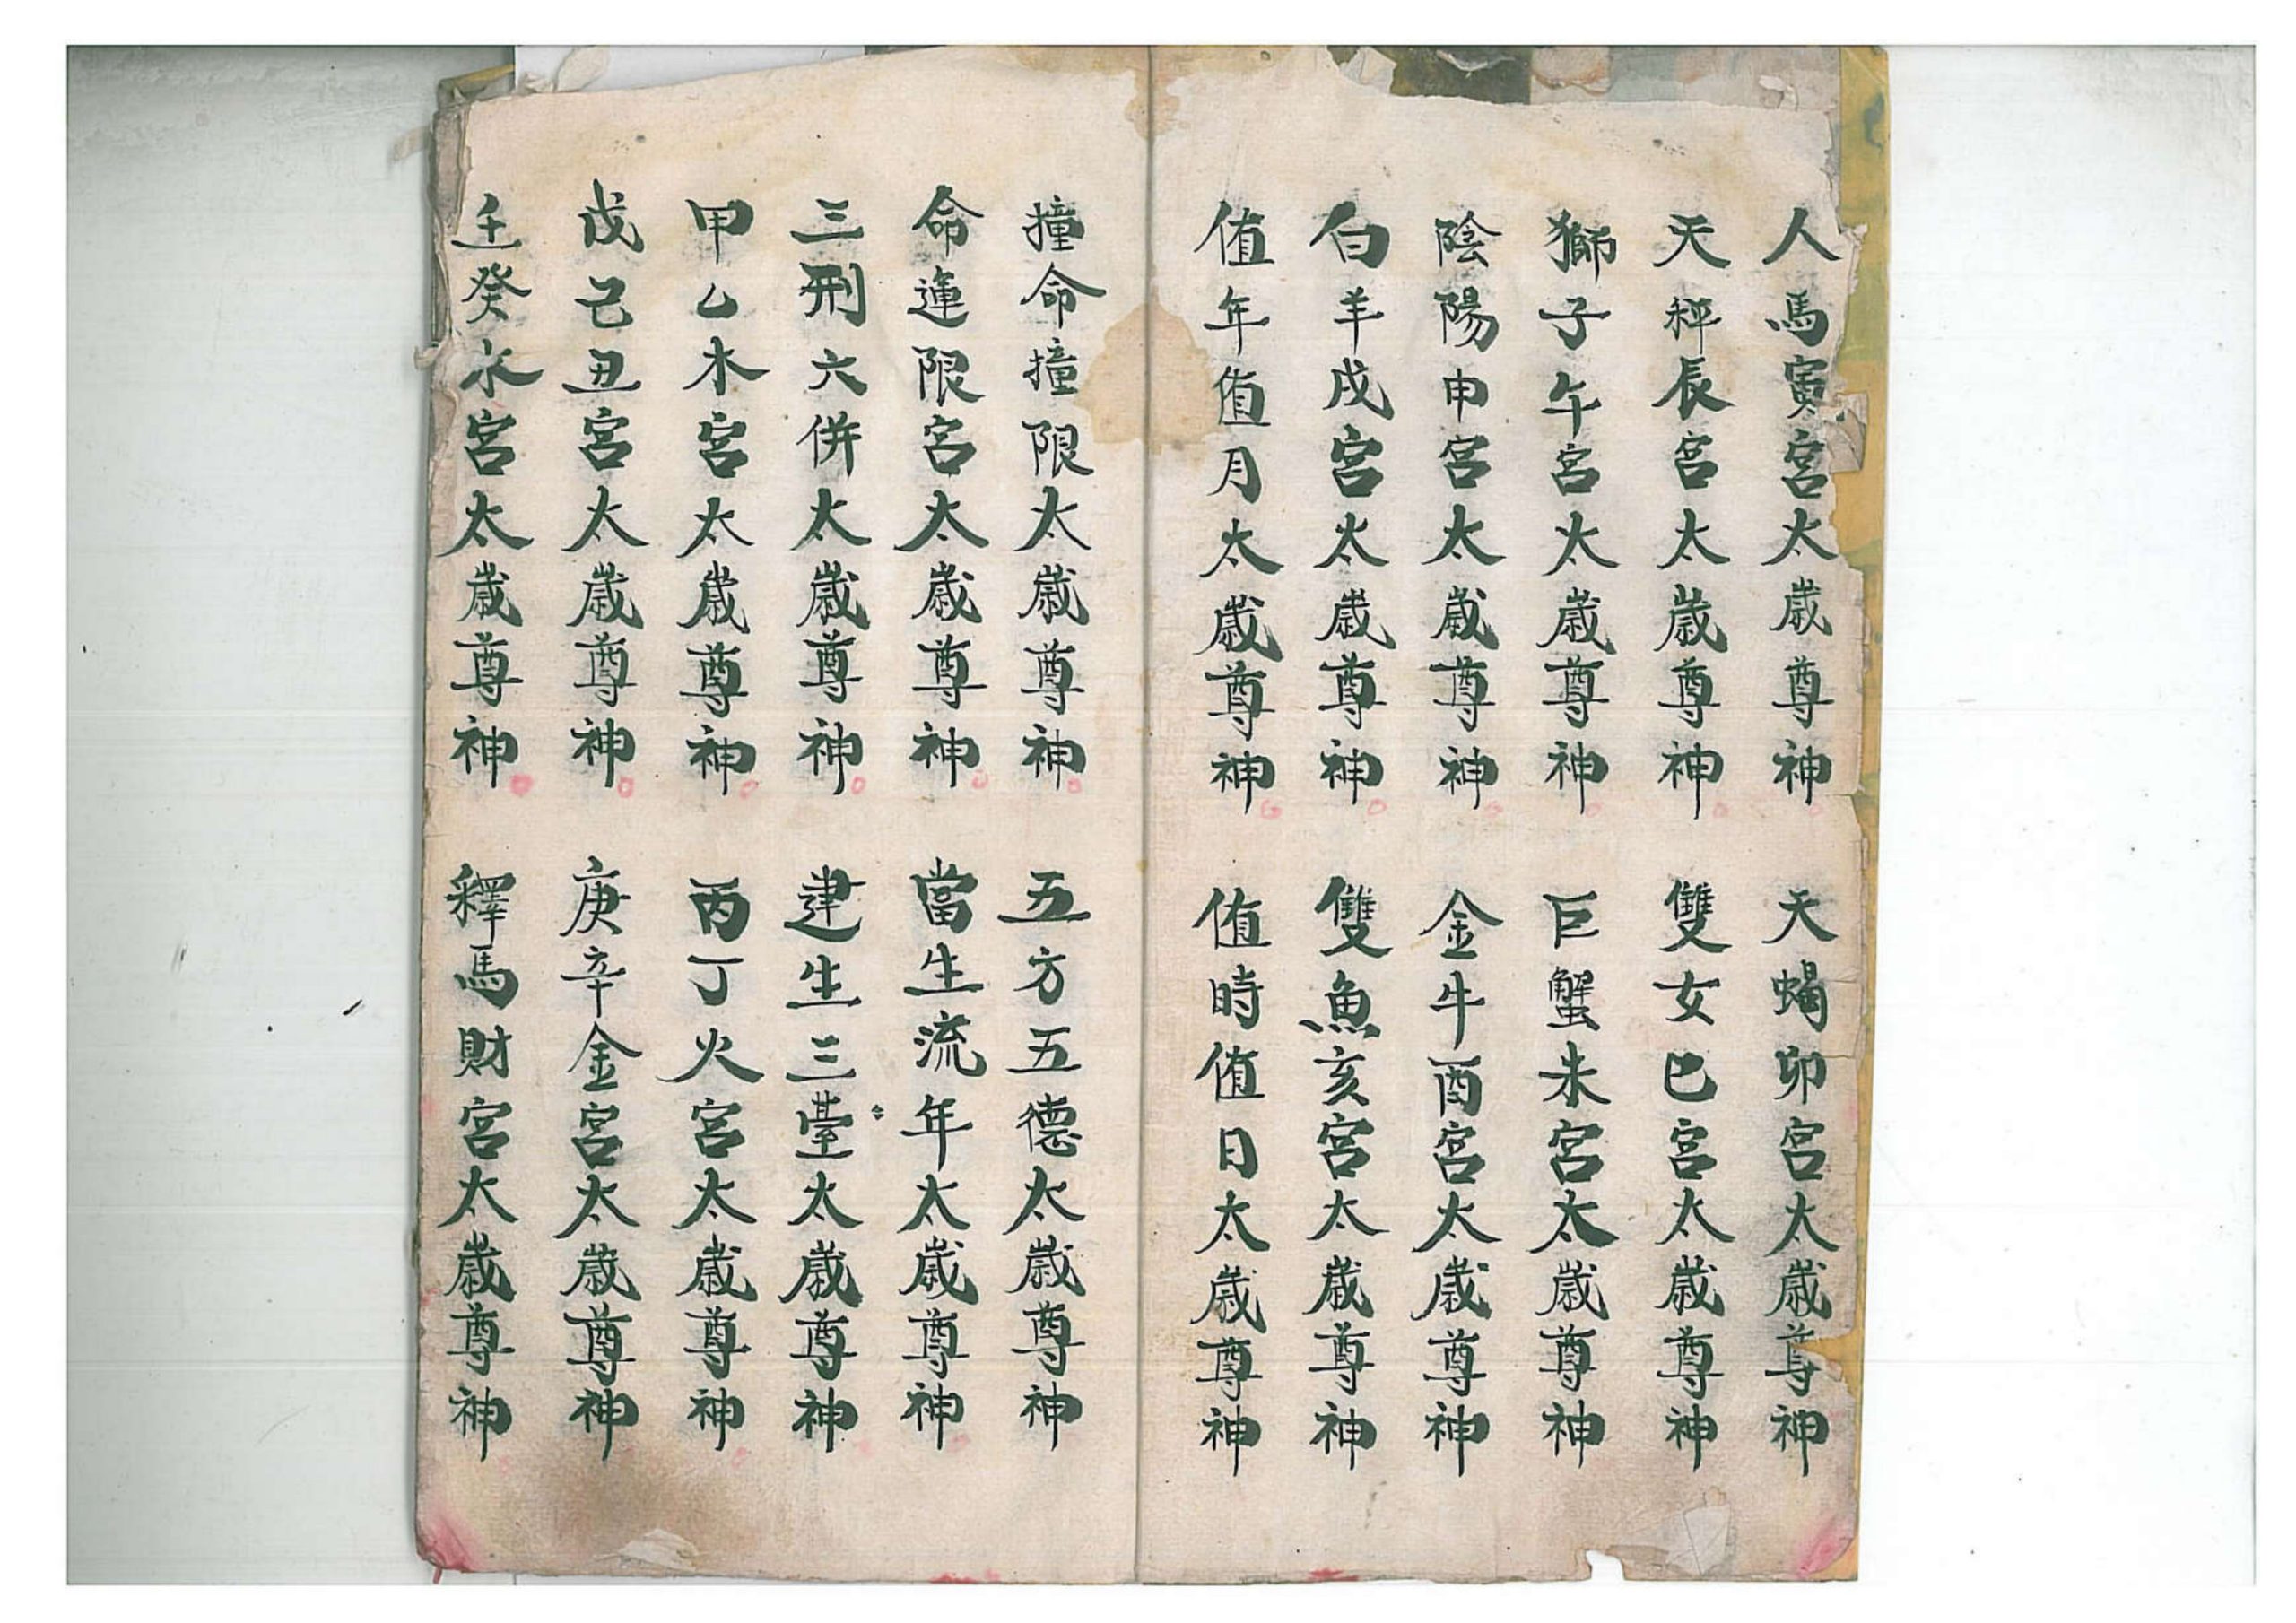 人馬寅宮太歲尊神 天蝎卯宮太歲尊神
天秤辰宮太歲尊神 雙女巳宮太歲尊神
獅子午宮太歲尊神 巨蟹未宮太歲尊神
陰陽申宮太歲尊神 金牛酉宮太歲尊神
白羊戌宮太歲尊神 雙魚亥宮太歲尊神
值年值月太歲尊神 值時值日太歲尊神
撞命撞限太歲尊神 五方五德太歲尊神
命運限宮太歲尊神 當生流年太歲尊神
三刑六併太歲尊神 建生三臺太歲尊神
甲乙木宮太歲尊神 丙丁火宮太歲尊神
戊己丑宮太歲尊神 庚辛金宮太歲尊神
壬癸水宮太歲尊神 釋馬財宮太歲尊神